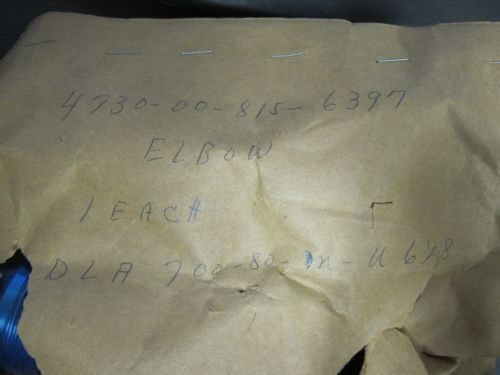 4730-00-815-6397
ELBOW
1 EACH
DLA 700-80-M-U648